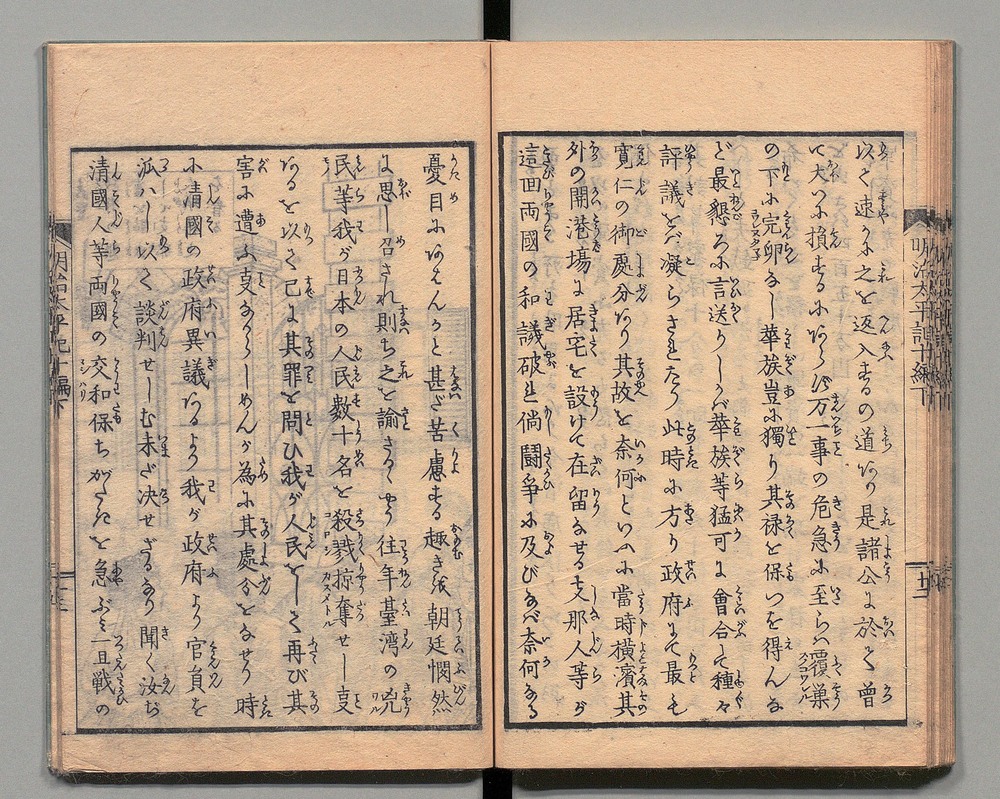 以て速かに之を返入するの道あり是諸公に於て曾
て大いに損するにあらず万一事の危急に至らバ覆巣
の下に完卵なし華族豈に獨り其禄を保つを得んな
ど最懇ろに言送りしかバ華族等猛可に會合して種々
評議をバ凝らされたり此時に方り政府にて最も
寛仁の御處分あり其故を奈何といふに當時横濱其
外の開港場に居宅を設けて在留なせる支那人等が
這回両國の和議破れ倘闘争に及びなバ奈何なる
明治太平記十編下
憂目にあはんかと甚だ苦慮する趣きを朝廷憫然
に思し召され則ち之を諭さるゝやう往年臺湾の兇
民等我が日本の人民數十名を殺戮掠奪せし事
あるを以て已に其罪を問ひ我が人民をして再び其
害に遭ふ事なからしめんが為に其處分をなせり時
に清國の政府異議あるより我が政府より官員を
派いし以て談判せしむ未だ決せざるなり聞く汝ぢ
清國人等両國の交和保ちがたきを急ぶミ一旦戦の
明治太平記十編下